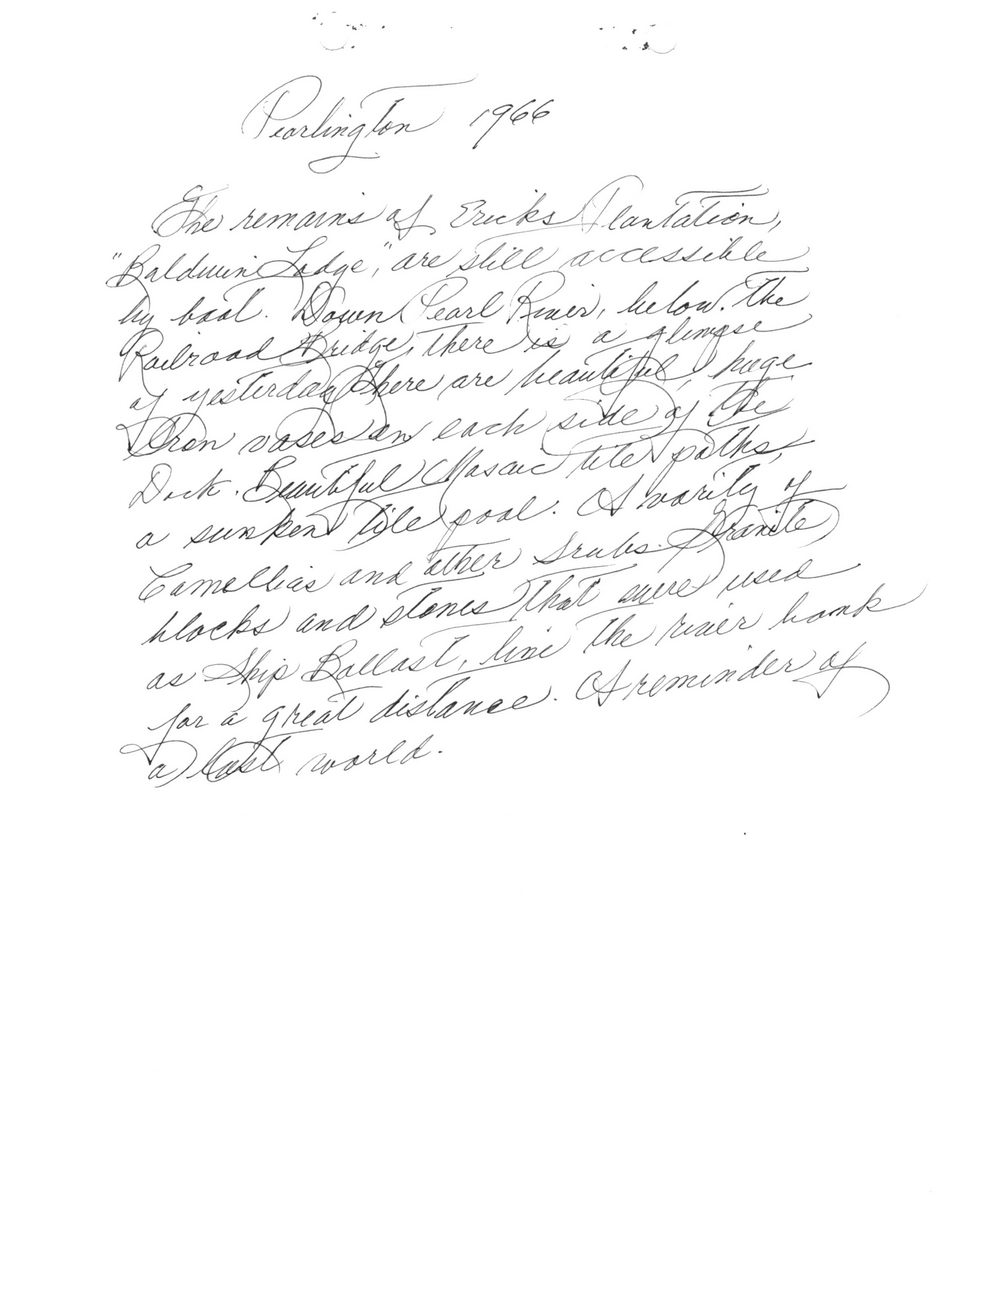 Pearlington 1966
The remains of Ericks Plantation,
"Baldwin Lodge," are still accessible
by boat. Down Pearl River, below. The
Railroad Bridge, there is a glimpse
of yesterday There are beautiful, huge
Iron vases on each side of the
Dock. Beautiful Mosaic tile paths,
a sunken tile pool. A varity of
Camellias and other Srubs. Granite
blocks and stones that were used
as Ship Ballast, line the river bank
for a great distance. A reminder of
a lost world.